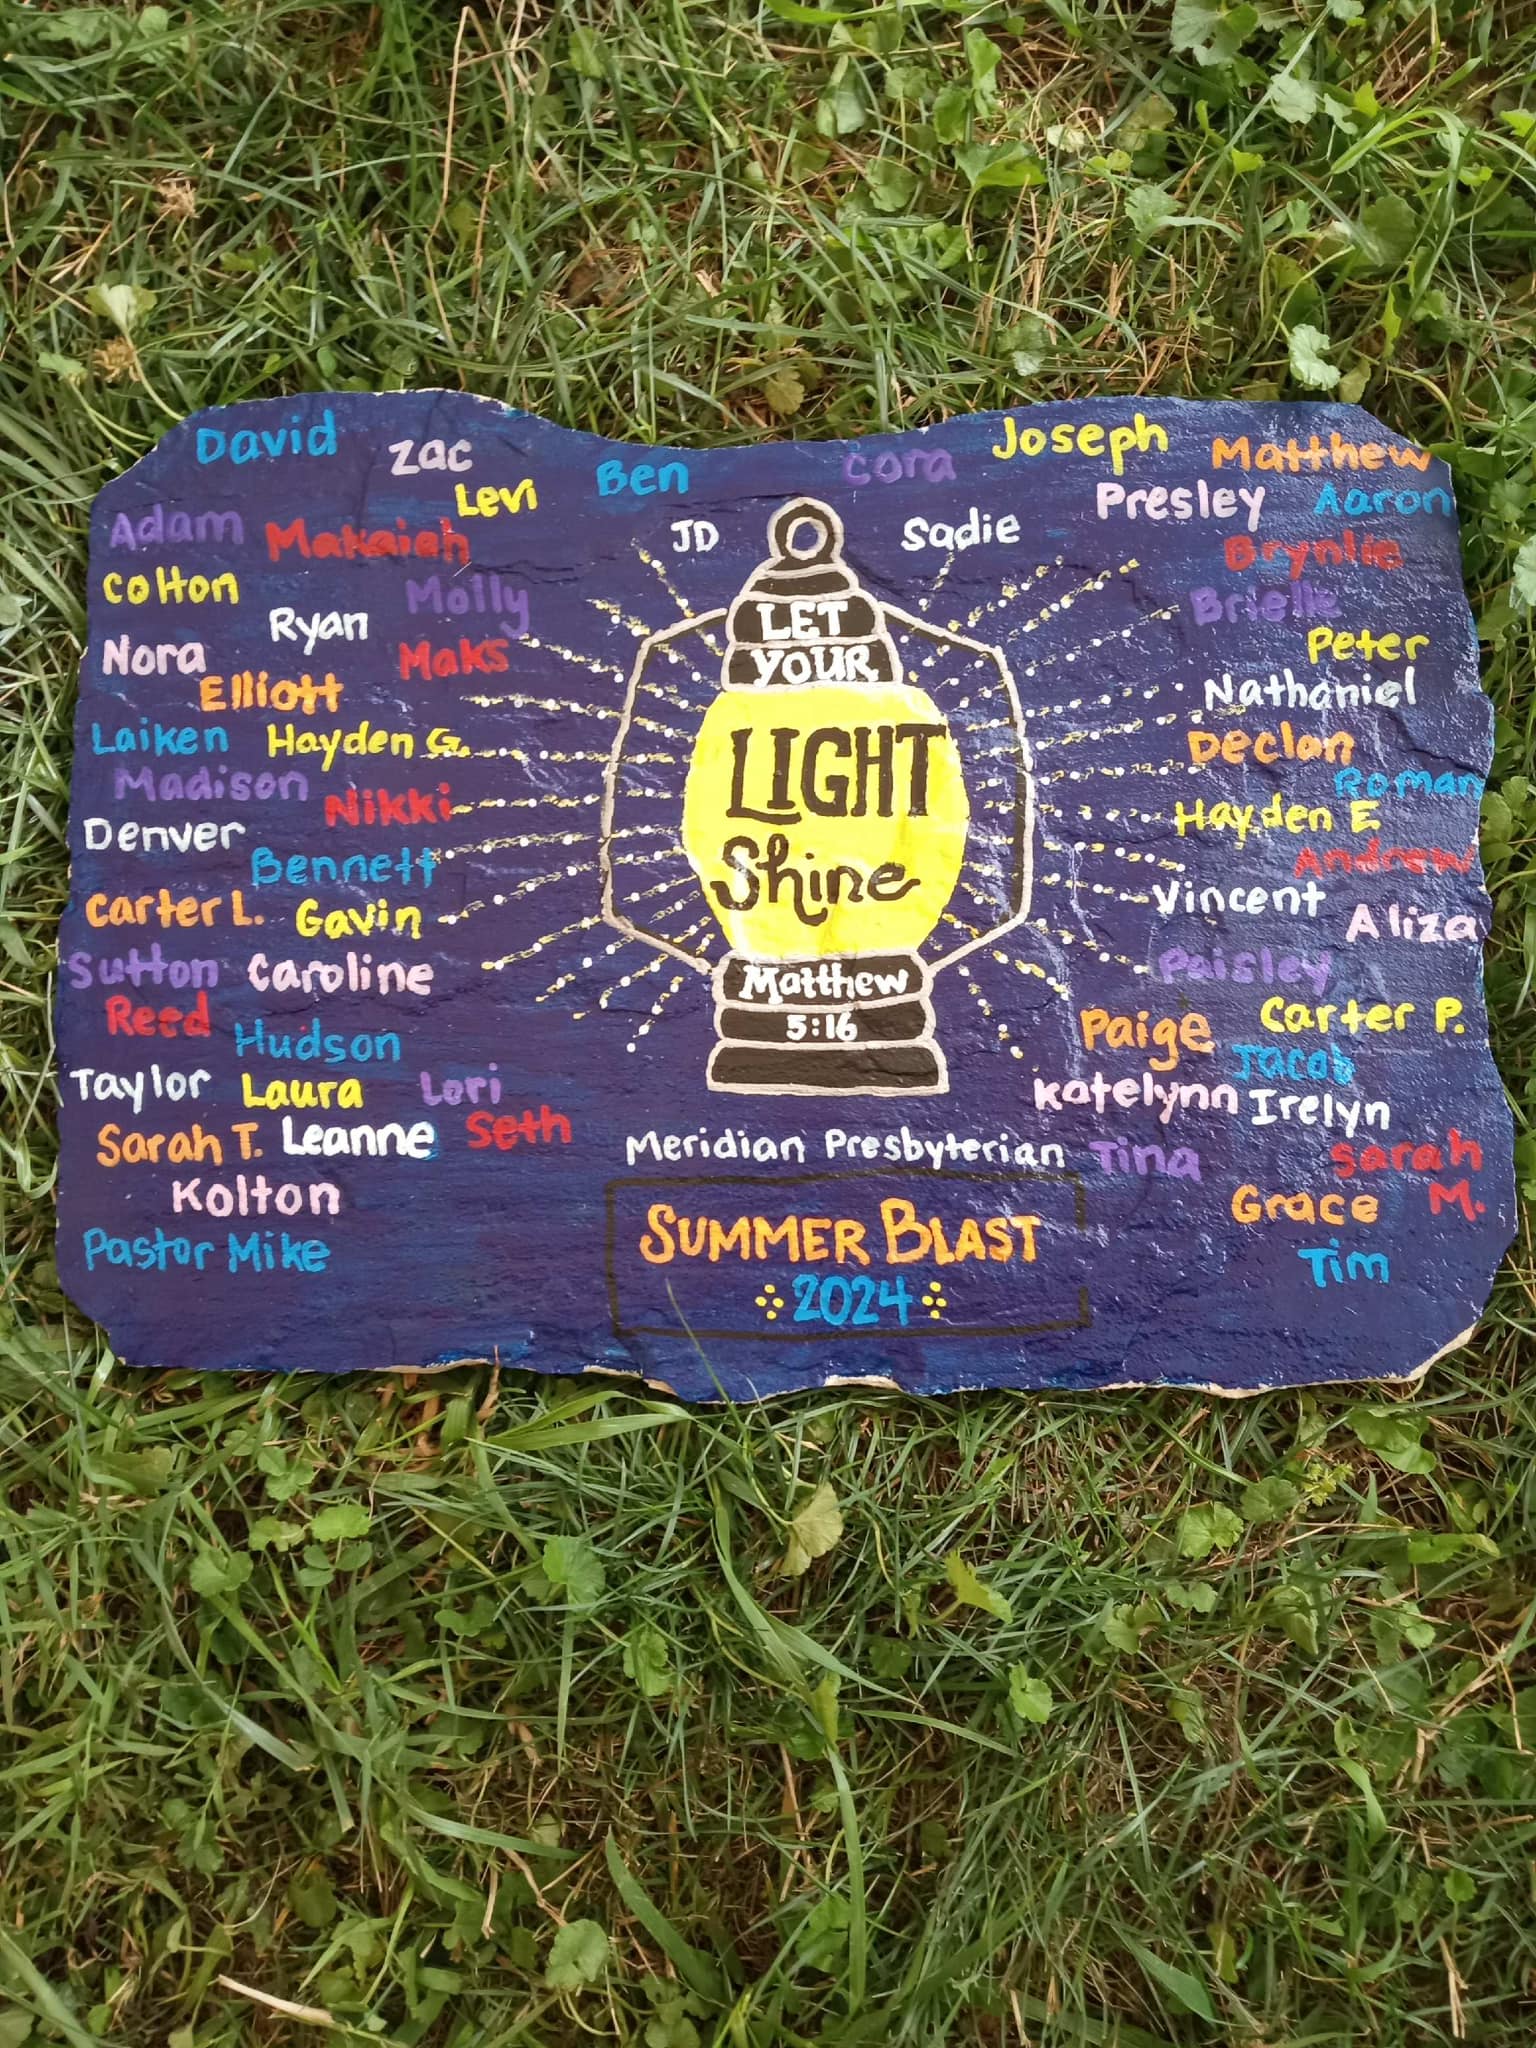 David
Zac
Levi
Ben
Cora
Joseph
Matthew
Presley
Aaron
Adam
Makaiah
JD
Sadie
Brynlie
Colton
Molly
Brielle
Ryan
Nora
Maks
Peter
Elliott
Nathaniel
Laiken
Hayden G.
Declan
Madison
Roman
Nikki
Hayden E
Denver
Bennett
Andrew
Carter L.
Gavin
Vincent
Aliza
Sutton
Caroline
Paisley
Reed
Hudson
Paige
Carter P.
Jacob
Taylor
Laura
Lori
Katelynn
Irelyn
Sarah T.
Leanne
Seth
Tina
Sarah
M.
Kolton
Grace
Pastor Mike
Tim
LET
YOUR
LIGHT
Shine
Matthew
5:16
Meridian Presbyterian
SUMMER BLAST
2024